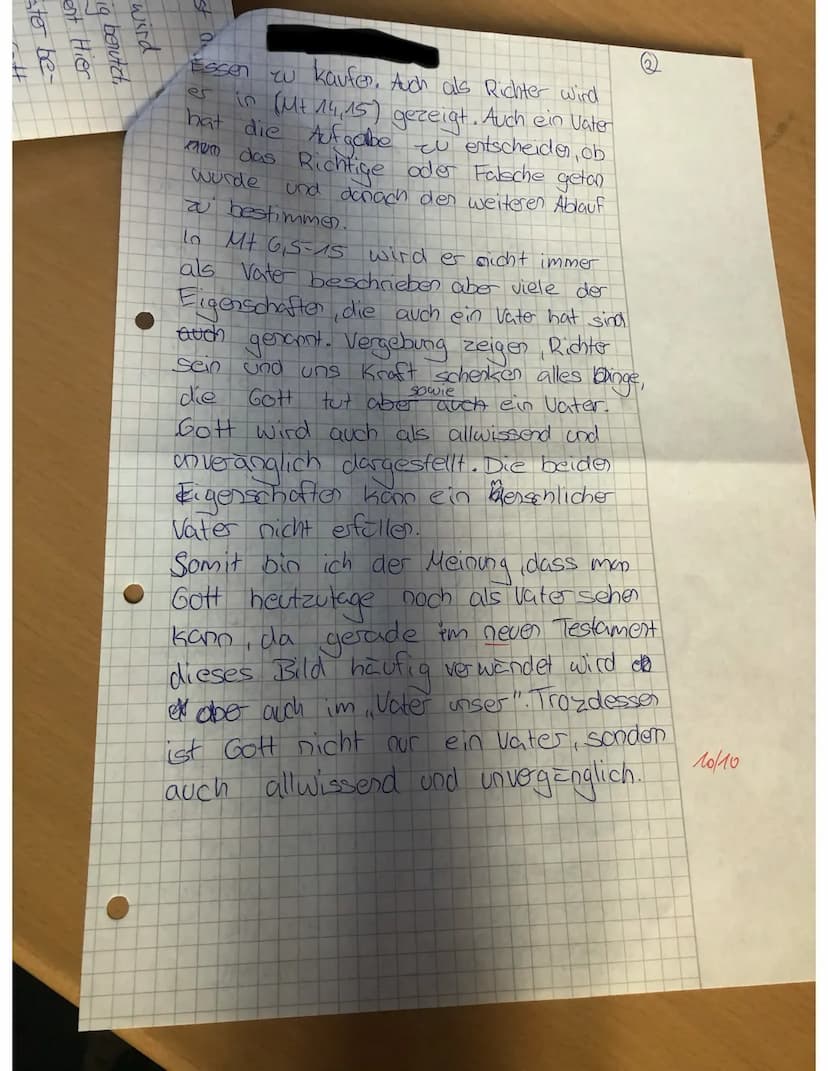 wird
ig benutzt
ent Hier
ster be-
②
Essen zu kaufen. Auch als Richter wird
er in (Mt 14,15) gezeigt. Auch ein Vater
hat die Aufgabe zu entscheiden, ob
nun das Richtige oder Falsche getan
wurde und danach den weiteren Ablauf
zu bestimmen.
In Mt 6,5-15 wird er nicht immer
als Vater beschrieben aber viele der
Eigenschaften, die auch ein Vater hat sind
auch genannt. Vergebung zeigen, Richter
sein und uns Kraft schenken alles Dinge,
sowie
die Gott tut aber auch ein Vater.
Gott wird auch als allwissend und
unvergänglich dargestellt. Die beiden
Eigenschaften kann ein Menschlicher
Vater nicht erfüllen.
Somit bin ich der Meinung, dass man
Gott heutzutage noch als Vater sehen
kann, da gerade im neuen Testament
dieses Bild häufig verwendet wird
aber auch im „Vater unser". Trozdessen
ist Gott nicht nur ein Vater, sondern
auch allwissend und unvergänglich.
10/10